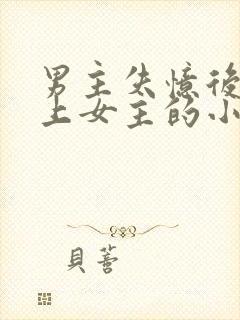 男主失憶後
上女主的小
貝蕾